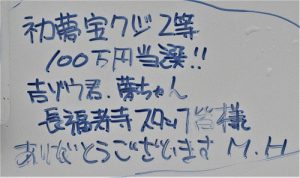 初夢宝クジ2等
100万円当選!!
吉ゾウ君.夢ちゃん
長福寿寺スタッフ皆様
ありがとうございます M.H